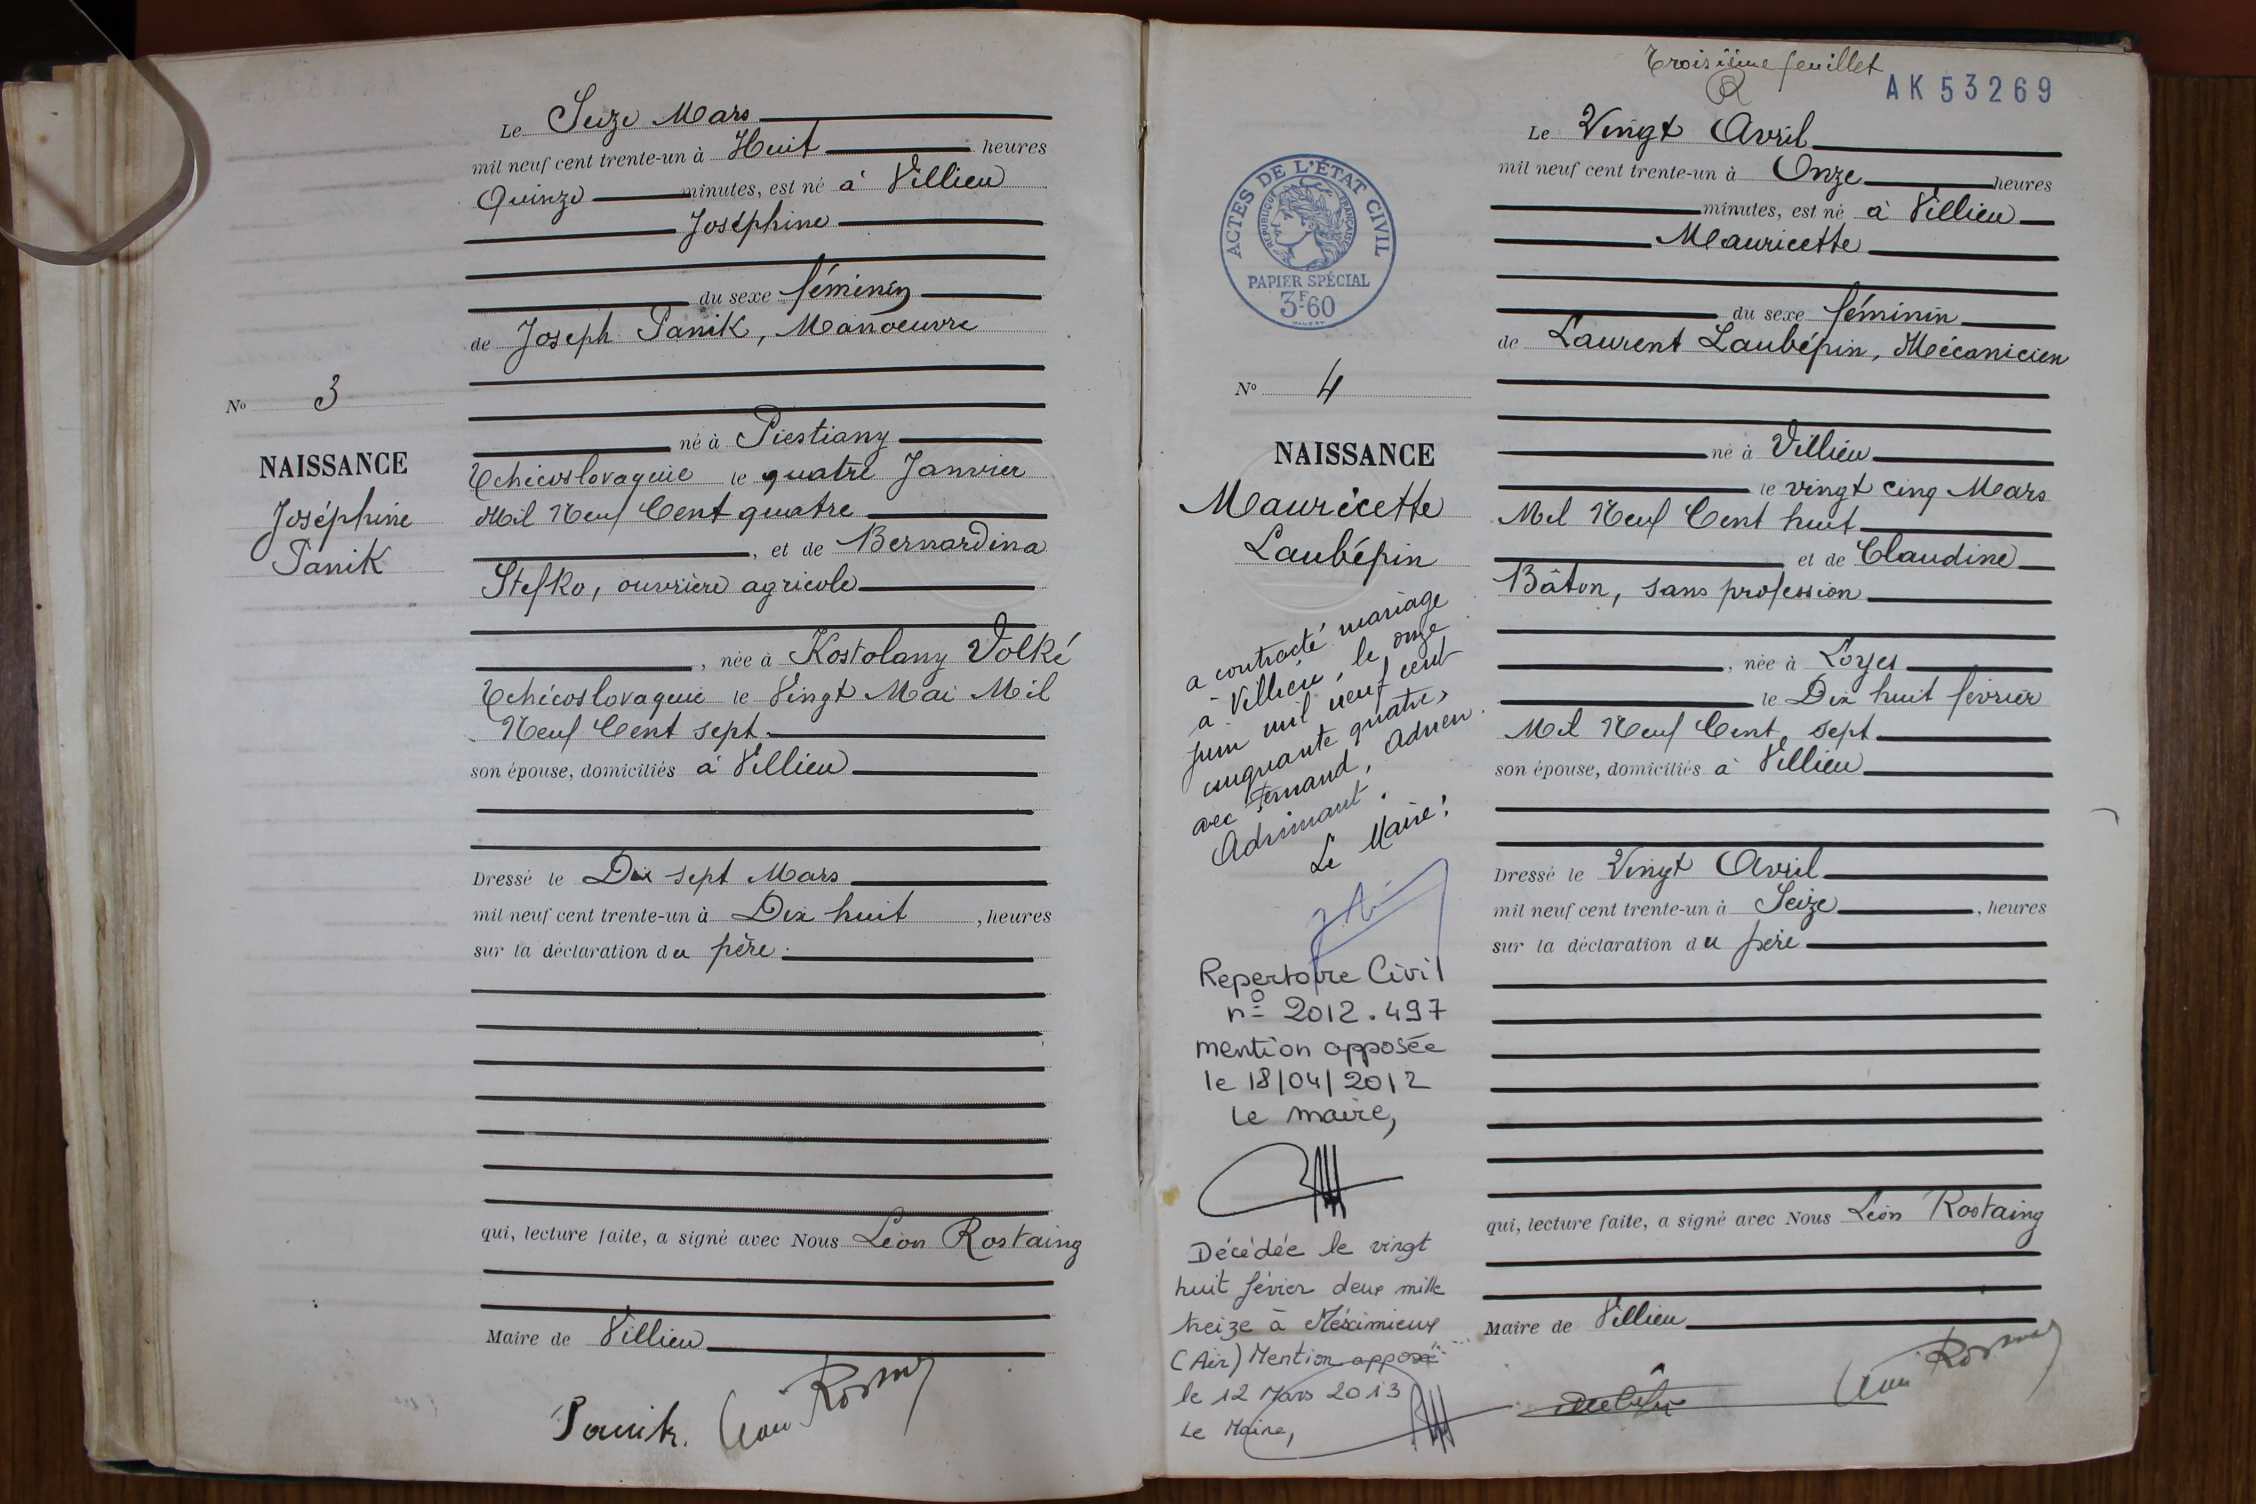 Le Seize Mars
mil neuf cent trente-un à Huit heures
Quinze minutes, est né à Villieu
Joséphine
du sexe féminin
de Joseph Panik, Manoeuvre
né à Piestiany
Tchécoslovaquie le quatre Janvier
Mil Neuf Cent quatre
, et de Bernardina
Stefko, ouvrière agricole
, née à Kostolany Volké
Tchécoslovaquie le Vingt Mai Mil
Neuf Cent sept
son épouse, domiciliés à Villieu
Dressé le Dix sept Mars
mil neuf cent trente-un à Dix huit , heures
sur la déclaration du père.
qui, lecture faite, a signé avec Nous Léon Rostaing
Maire de Villieu
Panik.
No 3
NAISSANCE
Joséphine
Panik
Troisième feuillet
AK 53269
Le Vingt Avril
mil neuf cent trente-un à Onze heures
minutes, est né à Villieu
Mauricette
du sexe féminin
de Laurent Laubépin, Mécanicien
né à Villieu
le vingt cinq Mars
Mil Neuf Cent huit
et de Claudine
Bâton, sans profession
, née à Loyes
le Dix huit février
Mil Neuf Cent sept
son épouse, domiciliés à Villieu
Dressé le Vingt Avril
mil neuf cent trente-un à Seize , heures
sur la déclaration du père
qui, lecture faite, a signé avec Nous Léon Rostaing
Maire de Villieu
ACTES DE L'ÉTAT CIVIL
RÉPUBLIQUE FRANÇAISE
PAPIER SPÉCIAL
3F.60
No 4
NAISSANCE
Mauricette
Laubépin
a contracté mariage
à Villieu, le onze
juin mil neuf cent
cinquante quatre,
avec Fernand, Adrien
Adrimant.
Le Maire:
Repertoire Civil
nº 2012.497
mention apposée
le 18/04/2012
Le maire,
Décédée le vingt
huit février deux mille
treize à Méximieux
(Ain) Mention apposée
le 12 Mars 2013
Le Maire,